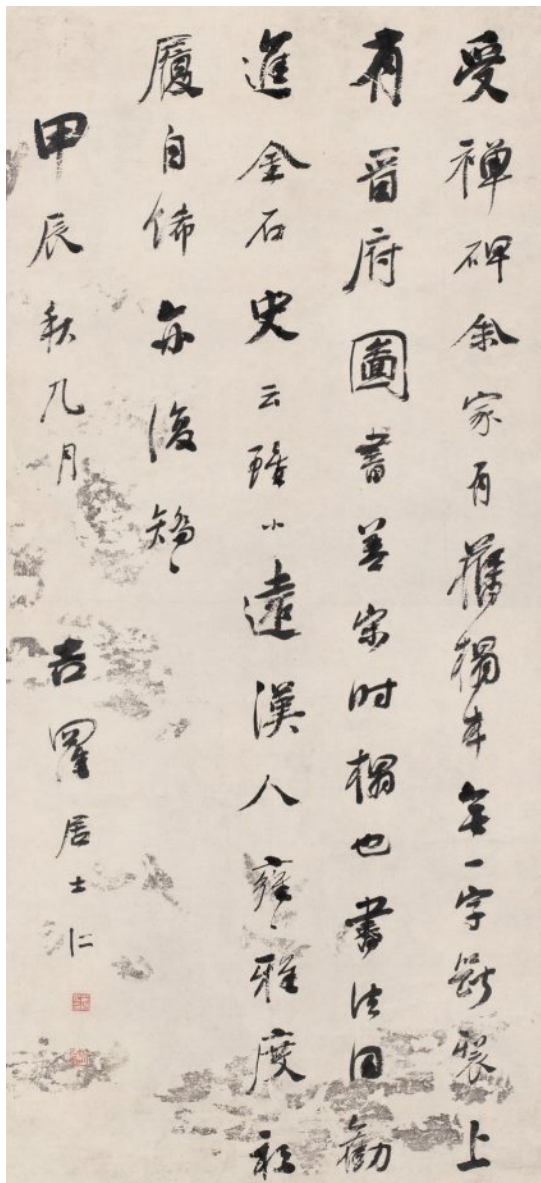 受禪碑余家有舊榻本無一字斷裂上
有晉府圖書蓋宋時榻也書法同勸
進金石史云雖小遠漢人雍〻雅度衫
履自飾亦復矯〻
甲辰秋九月 吉羅居士仁